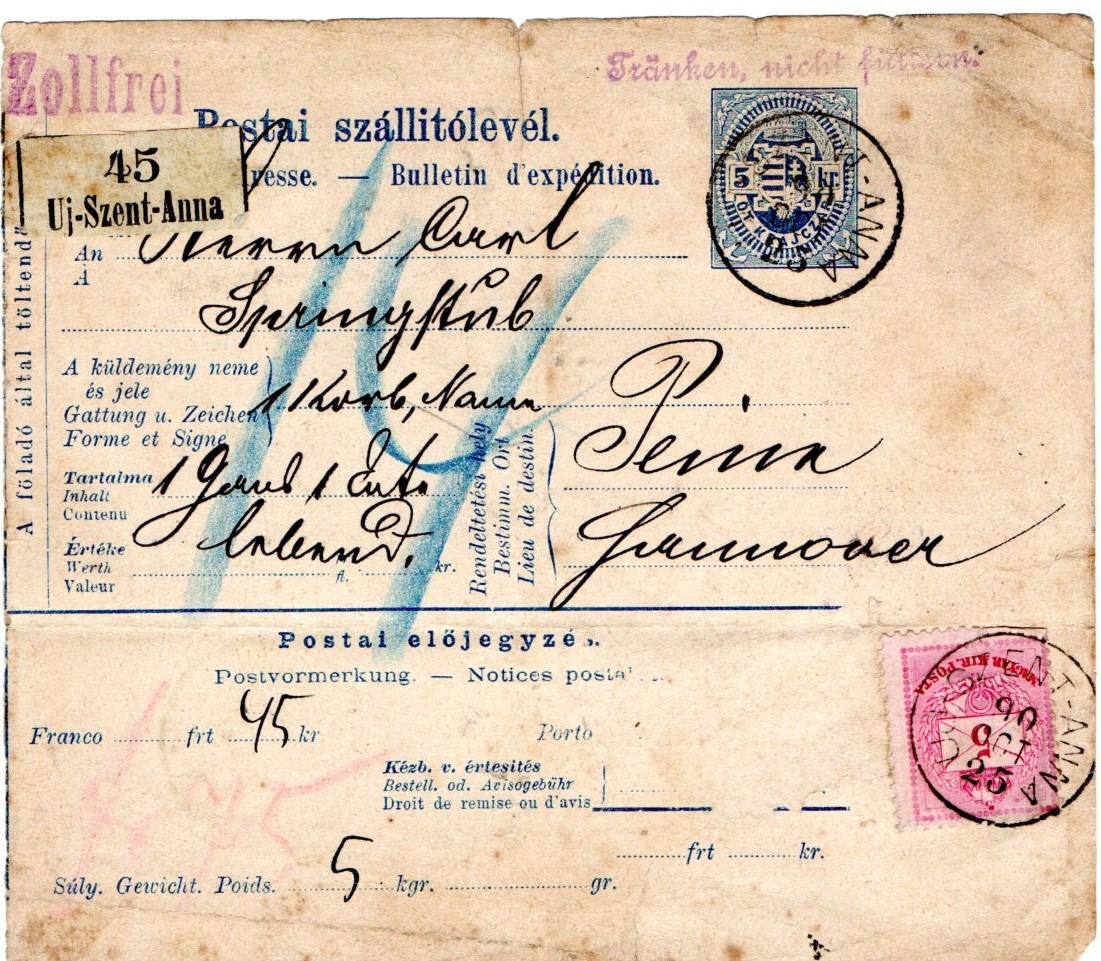 Zollfrei
Tränken, nicht füttern.
Postai szállitólevél.
resse. — Bulletin d'expédition.
45
Uj-Szent-Anna
5 kr.
ÖT KRAJCZÁR
T-ANNA
A föladó által töltend
An Herrn Carl
À
Springstub
A küldemény neme
és jele
Gattung u. Zeichen
Forme et Signe
1 Korb, Name
Tartalma
Inhalt
Contenu
1 Gans 1 Ente
lebend.
Értéke
Werth
Valeur
fl. kr.
Rendeltetési hely
Bestimm. Ort
Lieu de destin.
Peine
Hannover
14
Postai előjegyzés.
Postvormerkung. — Notices posta
Franco frt 45 kr
Porto
Kézb. v. értesités
Bestell. od. Avisogebühr
Droit de remise ou d'avis
frt kr.
Súly. Gewicht. Poids. 5 kgr. gr.
MAGYAR KIR. POSTA
SZENT-ANNA
90
OCT
25